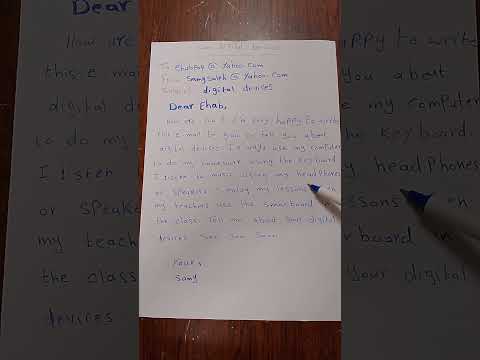 To: Ehabpop@ Yahoo.Com
From: Samysaleh@ Yahoo.Com
Subject: digital devices
Dear Ehab,
How are you? I'm very happy to write
this e mail to you to tell you about
digital devices. I always use my computer
to do my homework using the keyboard.
I listen to music using my headphones
or speakers. I enjoy my lessons when
my teachers use the smartboard in
the class. Tell me about your digital
devices. See you soon.
Yours,
Samy